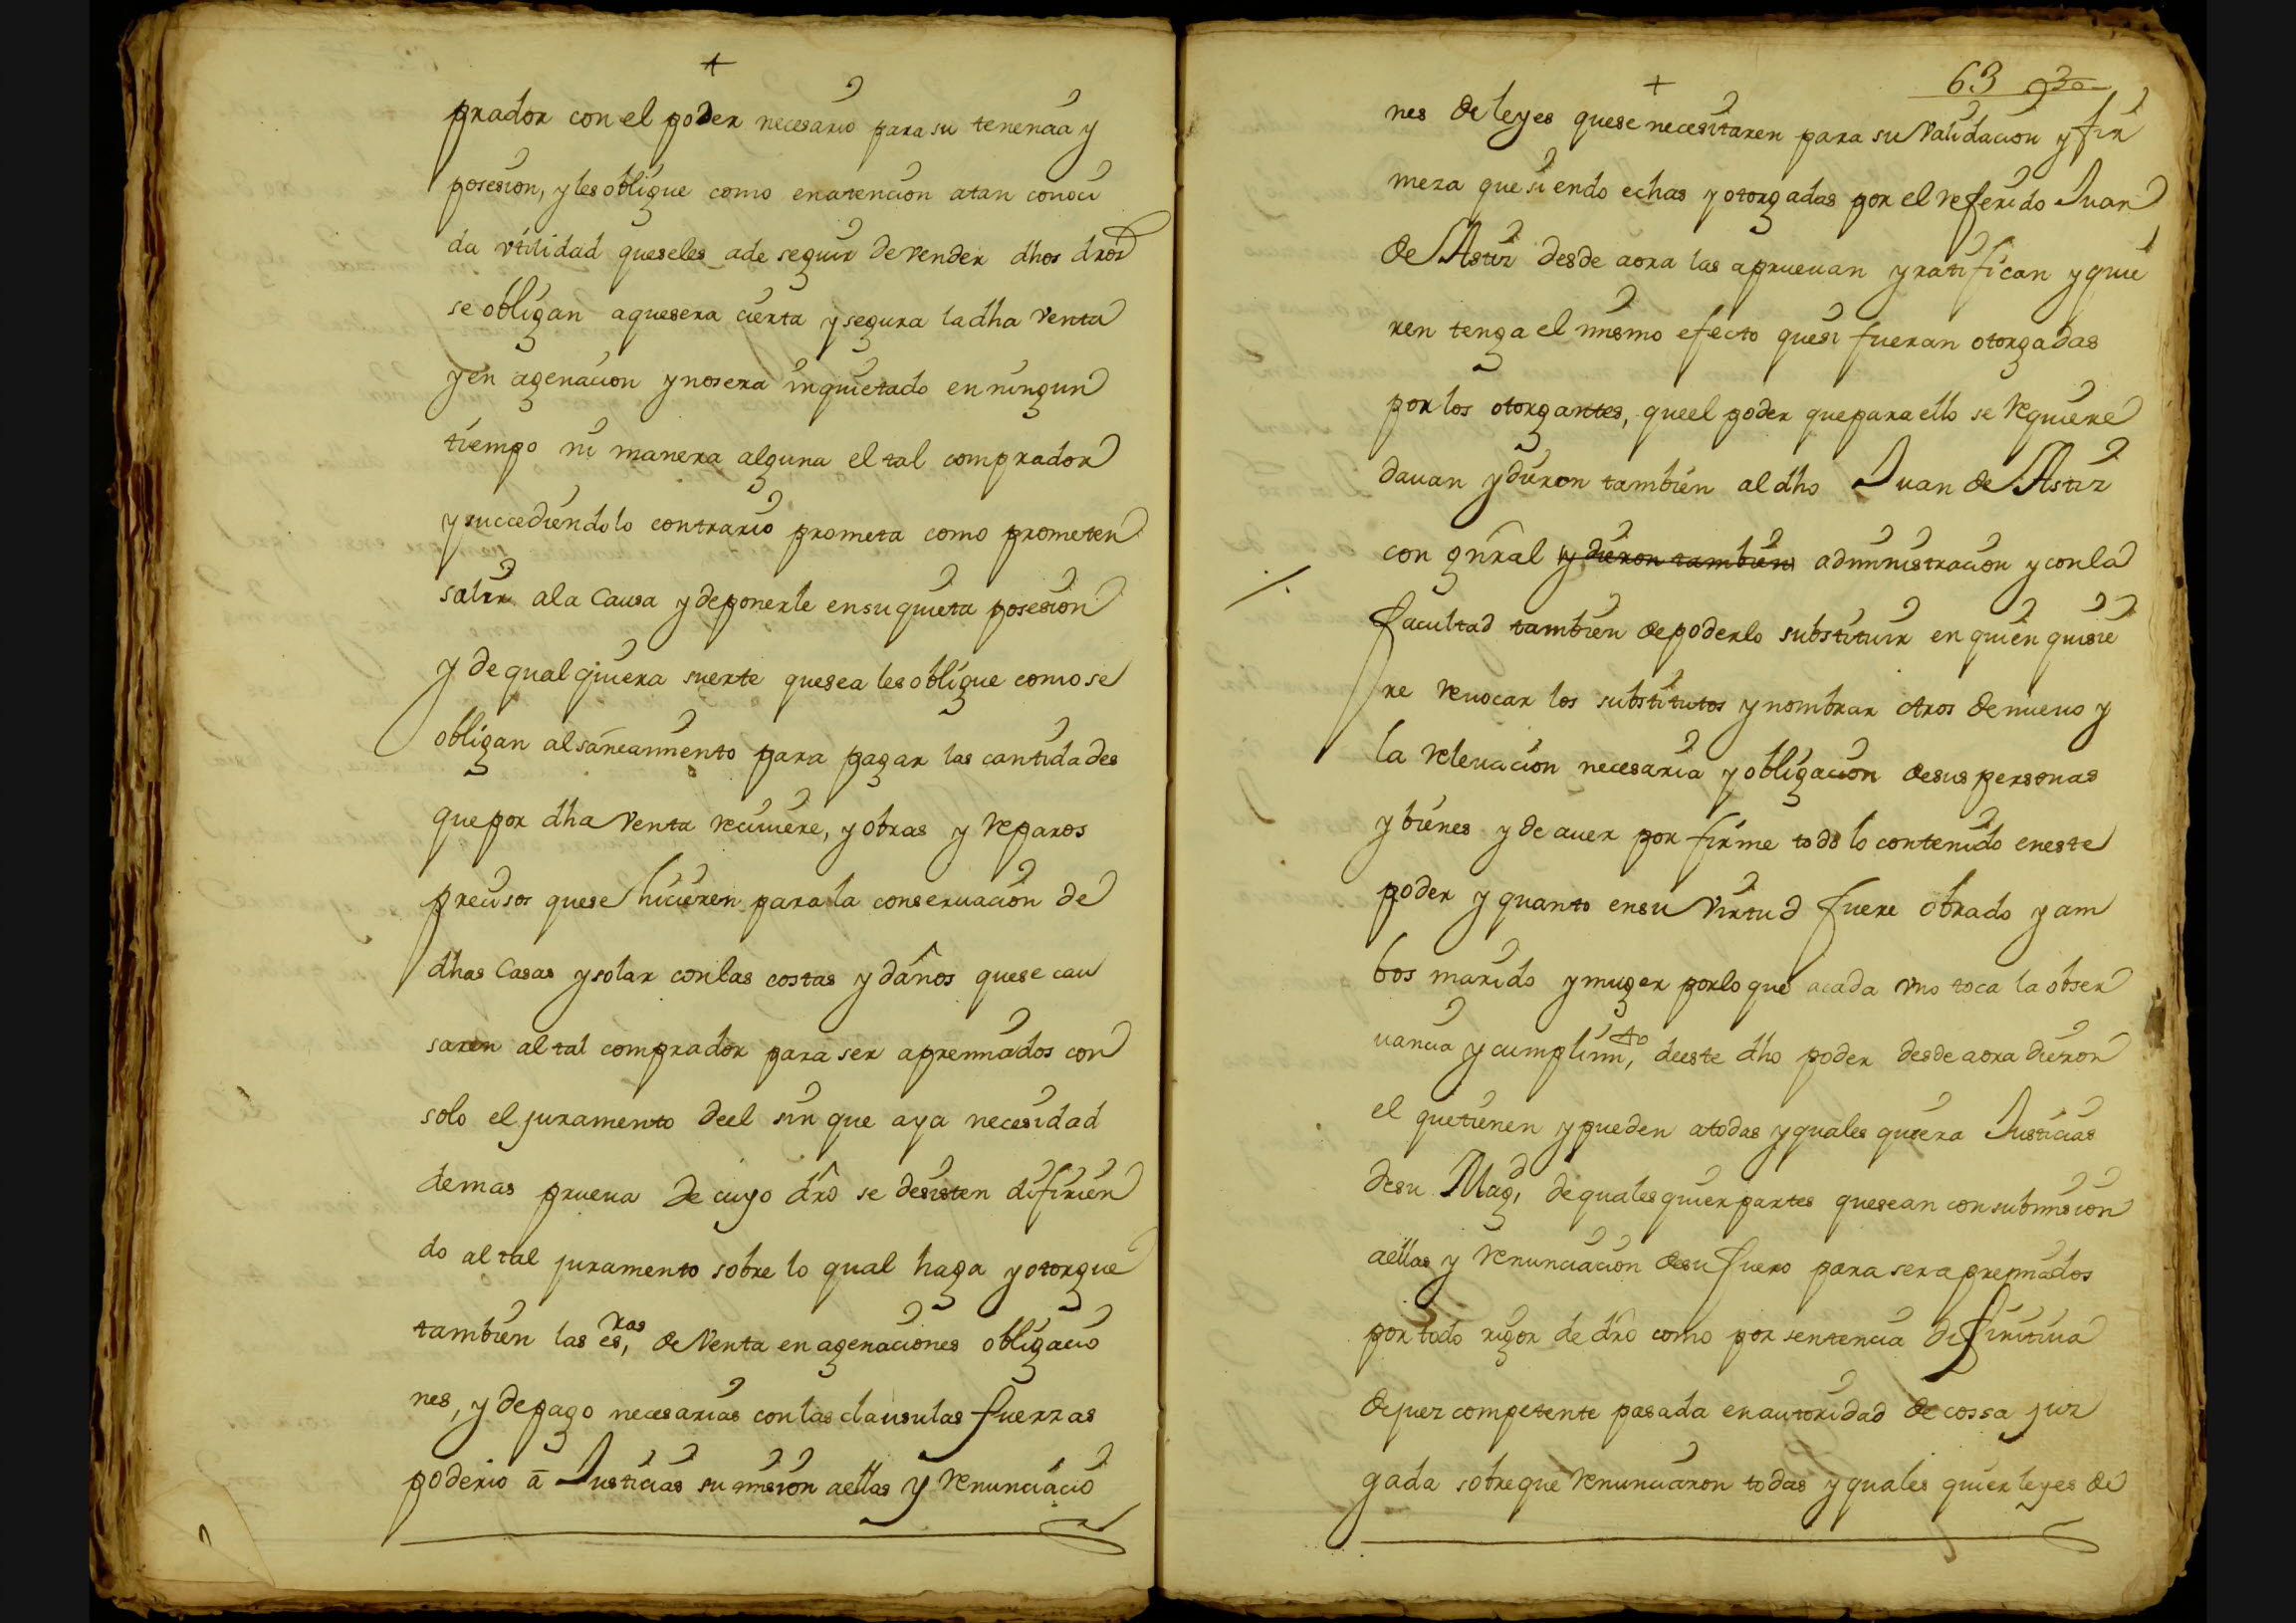 +
prador con el poder necesario para su tenencia y
posesion, y les obligue como en atencion a tan conoci
da vtilidad que se les a de seguir de vender dhos dros
se obligan a que sera cierta y segura la dha venta
y en agenacion y no sera inquietado en ningun
tiempo ni manera alguna el tal comprador
y succediendo lo contrario prometa como prometen
salir a la Causa y de ponerle en su quieta posesion
y de qual quiera suerte que sea les obligue como se
obligan al saneamiento para pagar las cantidades
que por dha Venta reciuiere, y obras y reparos
precisos que se hicieren para la conseruacion de
dhas Casas y solar con las costas y daños que se cau
saren al tal comprador para ser apremiados con
solo el juramento de el sin que aya necesidad
de mas prueua de cuyo dro se desisten difirien
do al tal juramento sobre lo qual haga y otorgue
tambien las es,ras de Venta en agenaciones obligacio
nes, y de pago necesarias con las clausulas fuerzas
poderio a Justicias su mision a ellas y renunciacio
63
+
nes de leyes que se necesitaren para su Validacion y fir
meza que siendo echas y otorgadas por el referido Juan
de Astiz desde aora las aprueuan y ratifican y quie
ren tenga el mismo efecto que si fueran otorgadas
por los otorgantes, que el poder que para ello se requiere
dauan y dieron tambien al dho Juan de Astiz
con gnral y dieron tambien administracion y con la
facultad tambien de poderlo substituir en quien quisie
re reuocar los substitutos y nombrar otros de nueuo y
la releuacion necesaria y obligacion de sus personas
y bienes y de auer por firme todo lo contenido en este
poder y quanto en su Virtud fuere obrado y am
bos marido y muger por lo que a cada vno toca la obser
uancia y cumplim,to de este dho poder desde aora dieron
el que tienen y pueden a todas y quales quiera Justicias
de su Mag,d de quales quier partes que sean con submision
a ellas y renunciacion de su fuero para ser apremiados
por todo rigor de dro como por sentencia difinitiua
de juez competente pasada en autoridad de cossa juz
gada sobre que renunciaron todas y quales quier leyes de